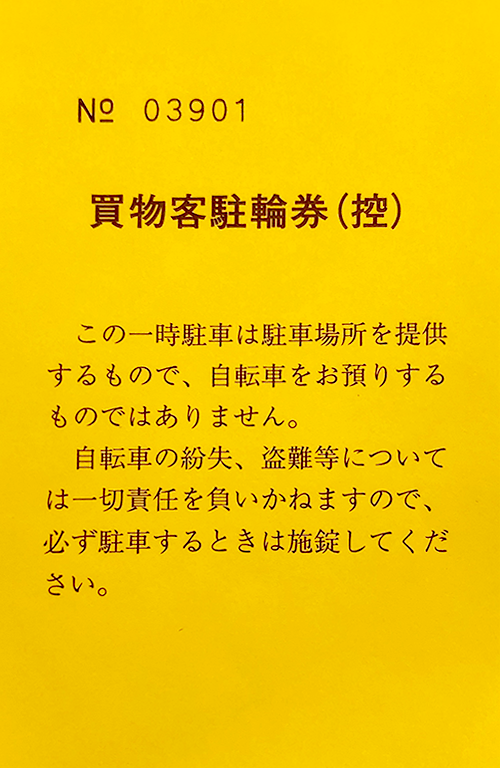 № 03901
買物客駐輪券(控)
この一時駐車は駐車場所を提供
するもので、自転車をお預りする
ものではありません。
自転車の紛失、盗難等について
は一切責任を負いかねますので、
必ず駐車するときは施錠してくだ
さい。